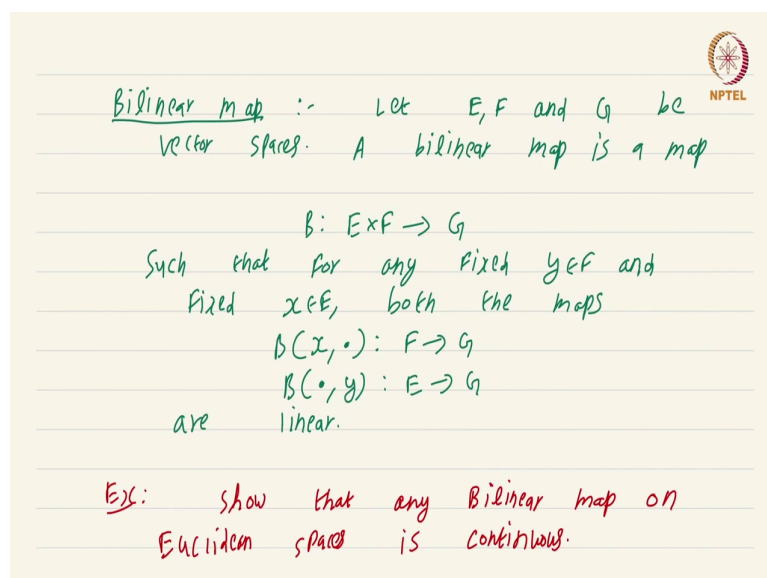 NPTEL
Bilinear map :- Let E, F and G be
vector spaces. A bilinear map is a map
B: E×F → G
Such that for any fixed y∈F and
fixed x∈E, both the maps
B(x, •): F → G
B(•, y): E → G
are linear.
Ex: Show that any Bilinear map on
Euclidean spaces is continuous.